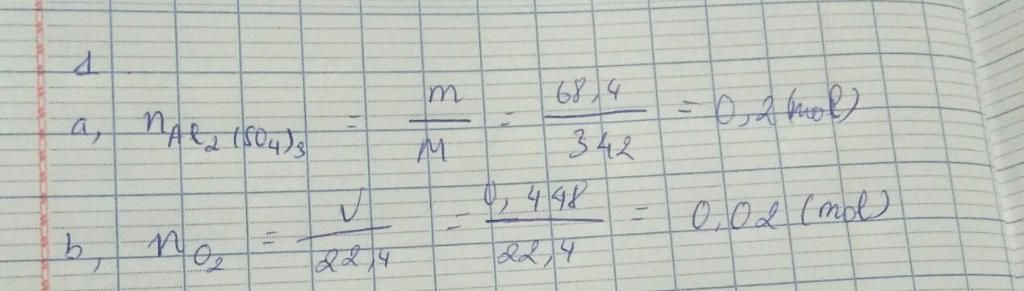 1
a, nAl₂(SO₄)₃ = m/M = 68,4/342 = 0,2 (mol)
b, nO₂ = V/22,4 = 0,448/22,4 = 0,02 (mol)